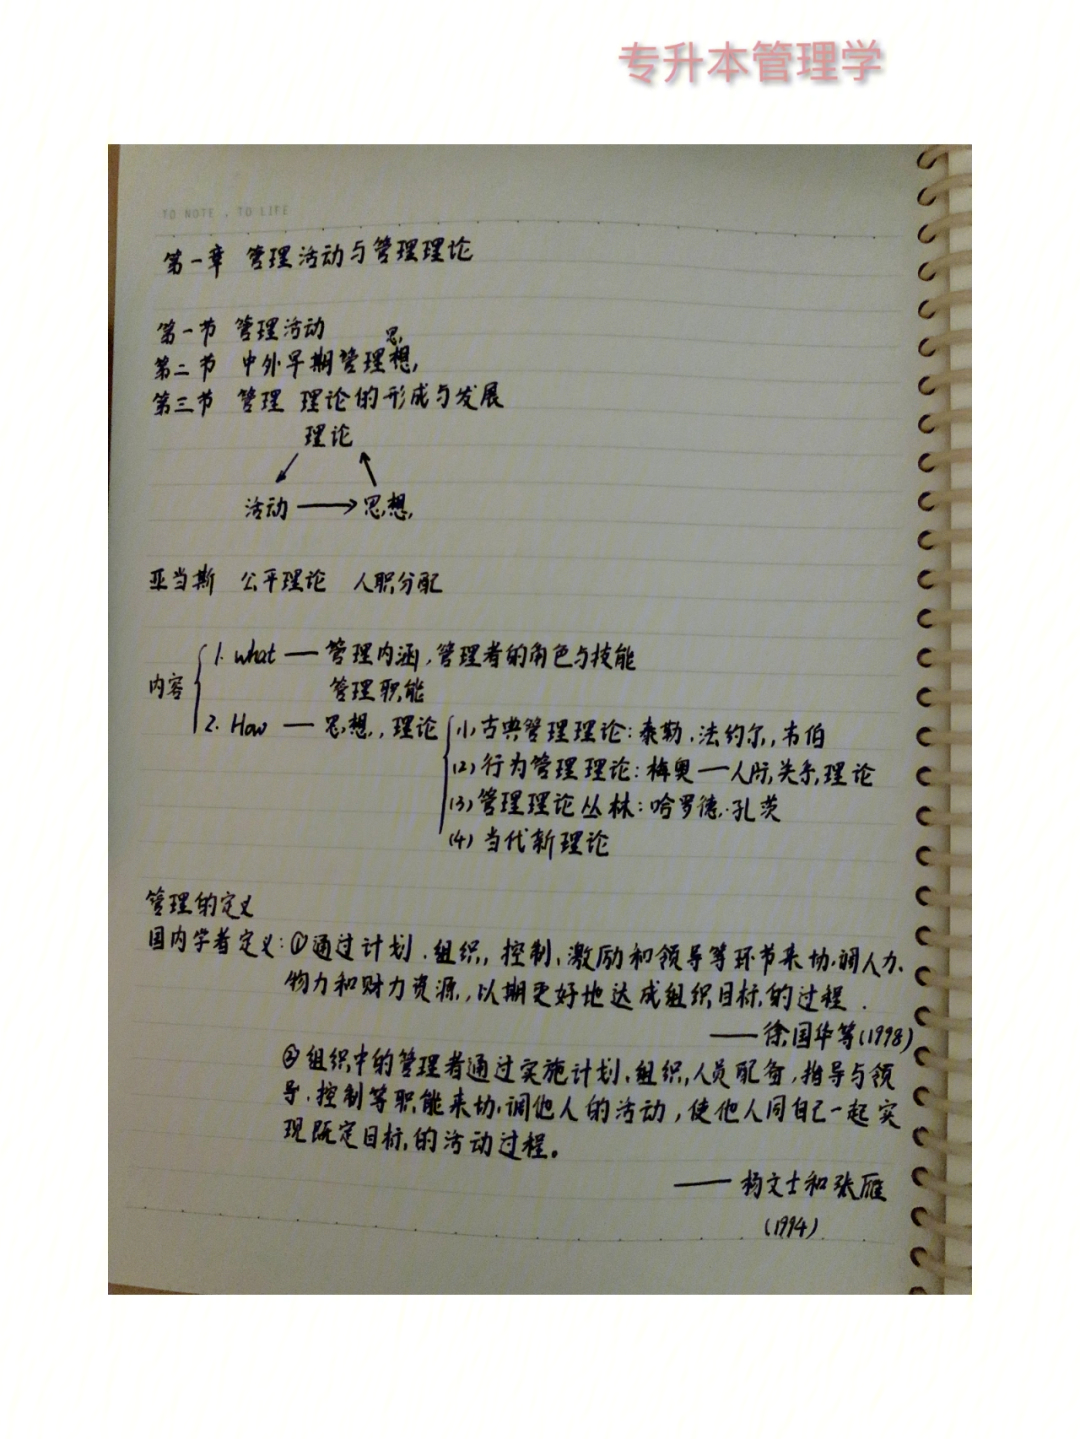 专升本管理学
TO NOTE , TO LIFE
第一章 管理活动与管理理论
第一节 管理活动
第二节 中外早期管理思想
第三节 管理 理论的形成与发展
理论
活动 → 思想
亚当斯 公平理论 人职分配
内容
1. what — 管理内涵、管理者的角色与技能
管理职能
2. How — 思想、理论
(1) 古典管理理论:泰勒、法约尔、韦伯
(2) 行为管理理论:梅奥—人际关系理论
(3) 管理理论丛林:哈罗德·孔茨
(4) 当代新理论
管理的定义
国内学者定义:①通过计划、组织、控制、激励和领导等环节来协调人力、
物力和财力资源,以期更好地达成组织目标的过程.
——徐国华等(1998)
②组织中的管理者通过实施计划、组织、人员配备、指导与领
导、控制等职能来协调他人的活动,使他人同自己一起实
现既定目标的活动过程。
——杨文士和张雁
(1994)